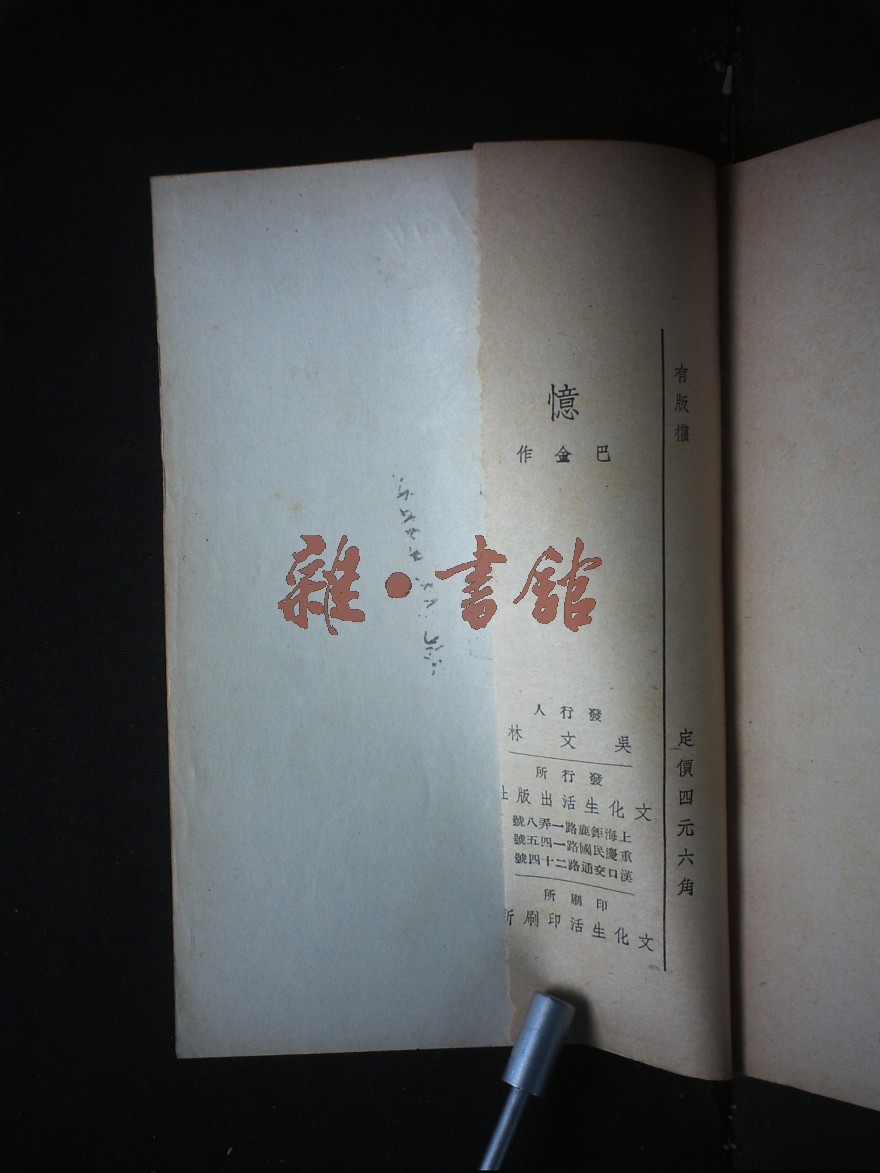 有版權
定價四元六角
憶
巴金作
發行人
吳文林
發行所
文化生活出版社
上海鉅鹿路一弄八號
重慶民國路一四五號
漢口交通路二十四號
印刷所
文化生活印刷所
雜·書館